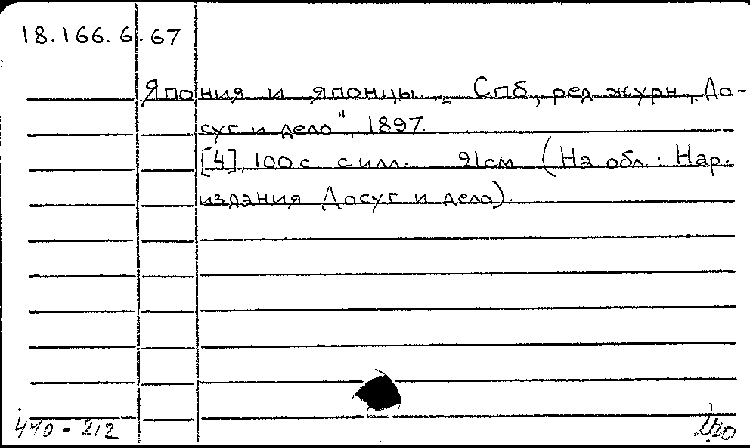 18.166.6.67
Япония и японцы. Спб, ред журн „До-
суг и дело", 1897.
[4], 100 с с илл. 21 см (На обл.: Нар.
издания Досуг и дела).
440-212